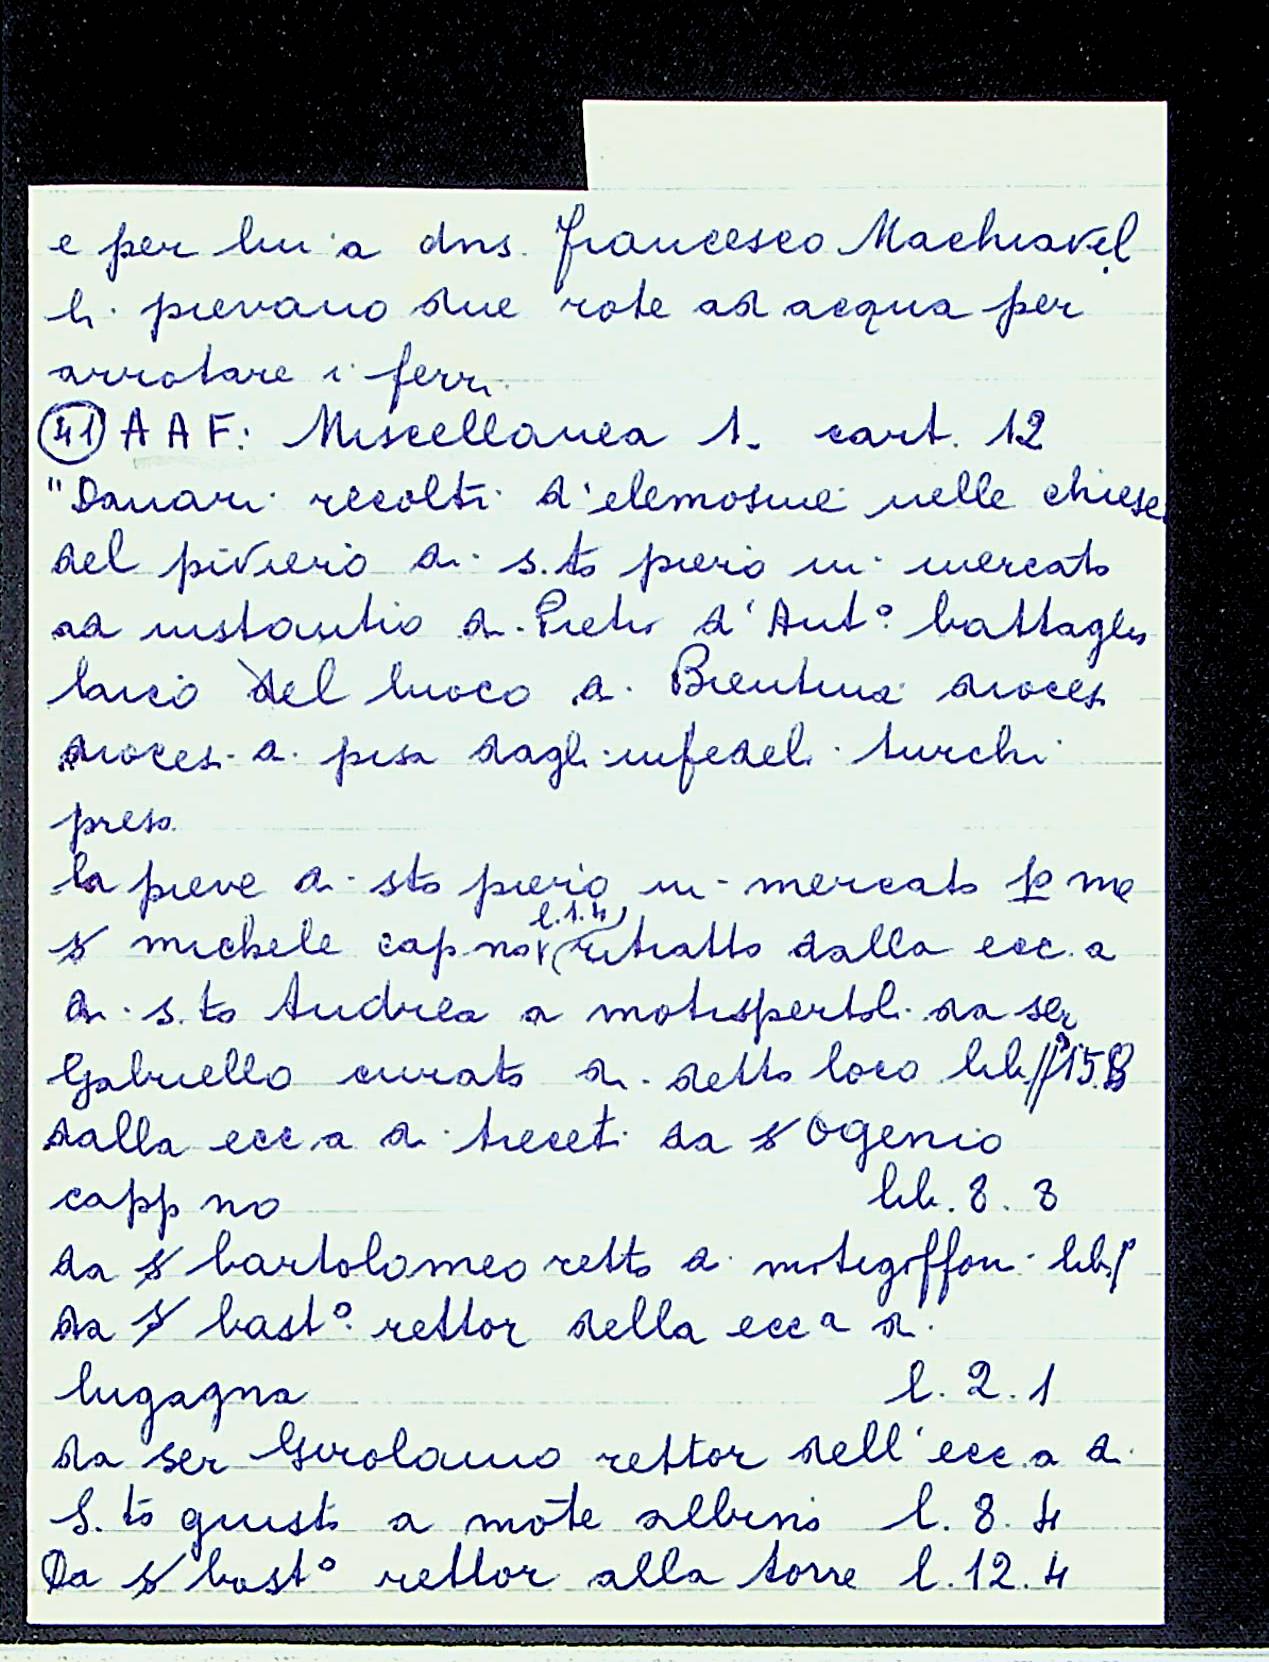 e per lui a dns. Francesco Machiavel
li pievano due rote ad acqua per
arrotare i ferri
(41) A A F: Miscellanea 1. cart. 12
"Danari recolti d'elemosine nelle chiese
del piviero di s.to piero in mercato
ad instantio di Pietro d'Ant° battagli
laico del luoco di Bientina dioces
dioces. di pisa dagli infedeli turchi
preso
la pieve di sto piero in mercato po me
s michele cap no l.1.4 (ritratto dalla ecc.a
di s.to Andrea a motispertoli da ser
Gabriello curato di detto loco lib 15.8
dalla ecc.a di treceti da s Ogenio
capp no lib. 8. 8
da s bartolomeo retto di motigoffoni lib
da s bast° rettor della ecc a di
lugagna l. 2. 1
da ser Girolamo rettor dell'ecc.a di
S.to giusto a mōte albino l. 8. 4
Da s bast° rettor alla torre l. 12. 4